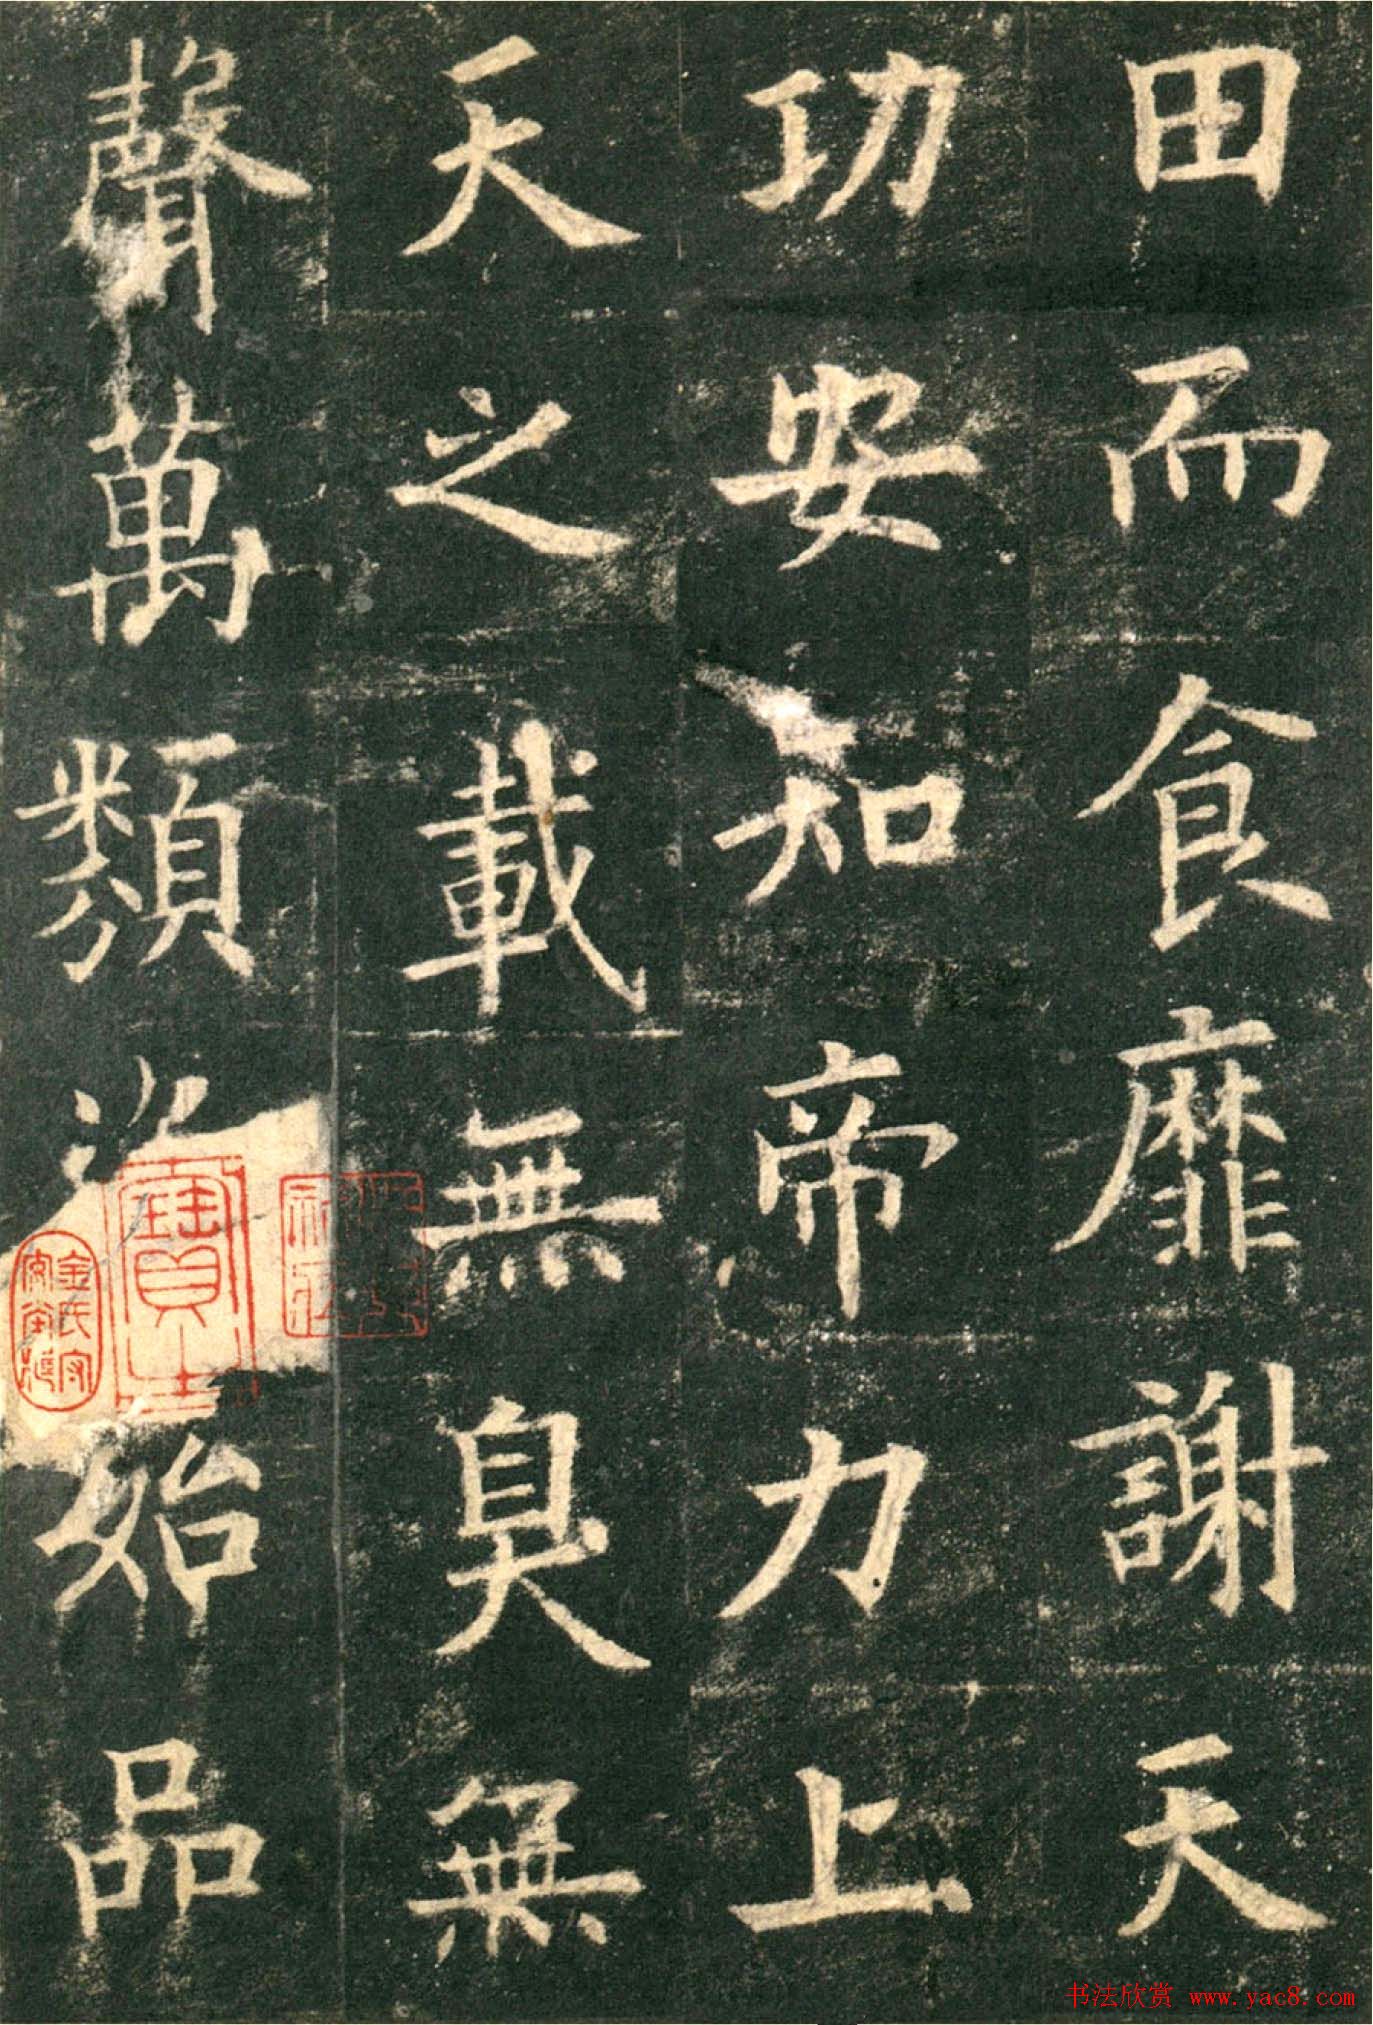 田而食靡謝天
功安知帝力上
天之載無臭無
聲萬類資始品
書法欣赏 www.yac8.com